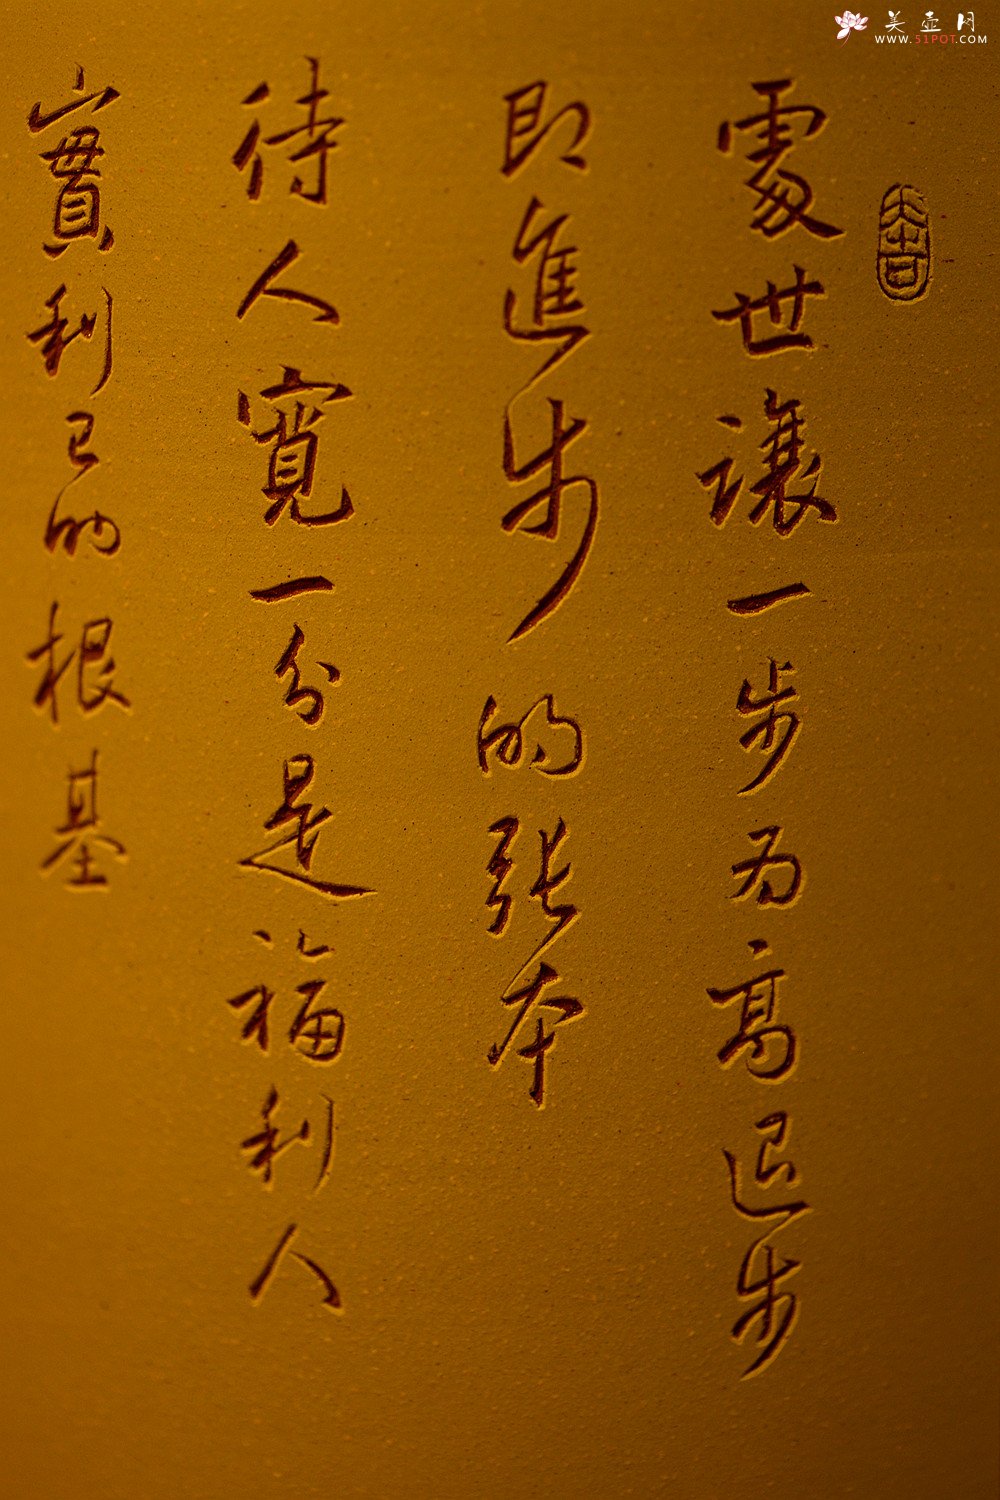 美壶网
WWW.51POT.COM
大吉
處世讓一步為高退步
即進步的張本
待人寬一分是福利人
實利己的根基